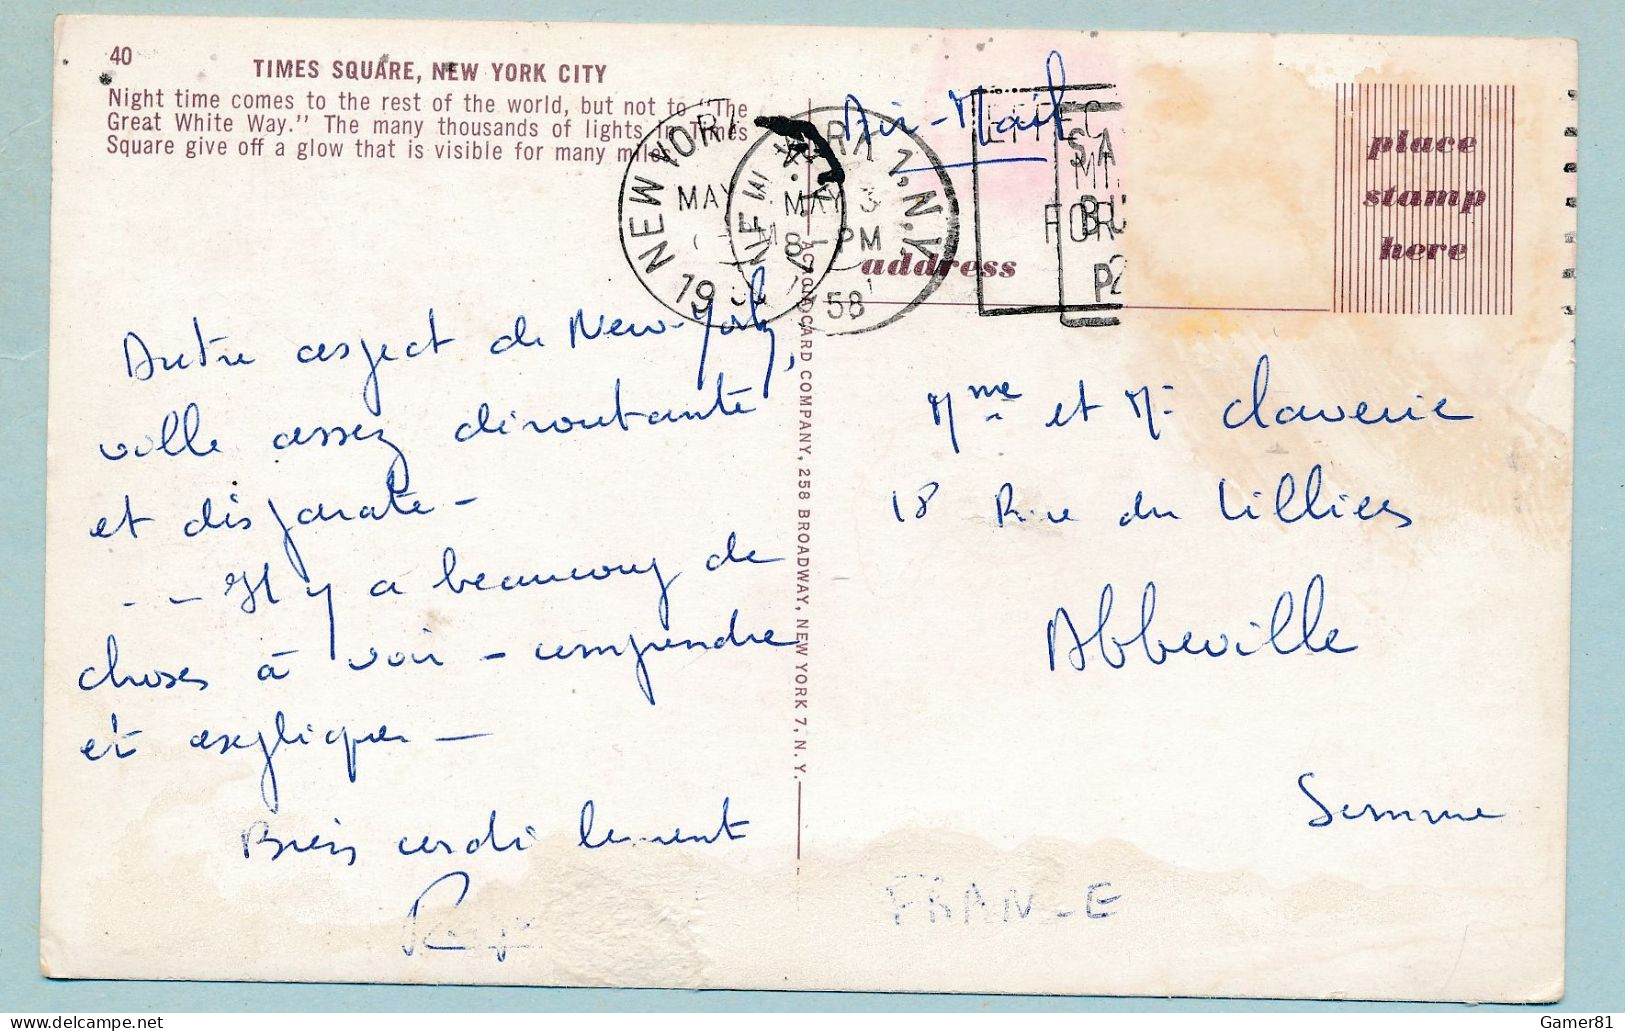 40
TIMES SQUARE, NEW YORK CITY
Night time comes to the rest of the world, but not to "The
Great White Way." The many thousands of lights in Times
Square give off a glow that is visible for many miles.
Air-Mail
NEW YORK
MAY
19
NEW YORK 1, N.Y.
MAY 3
PM
1958
FOR
place
stamp
here
address
ACACIA CARD COMPANY, 258 BROADWAY, NEW YORK 7, N. Y.
Autre aspect de New-York,
ville assez déroutante
et disparate -
-- Il y a beaucoup de
choses à voir - comprendre
et expliquer -
Bien cordialement
Mme et Mr Claverie
18 Rue du Lilliers
Abbeville
Somme
FRANCE
Gamer81